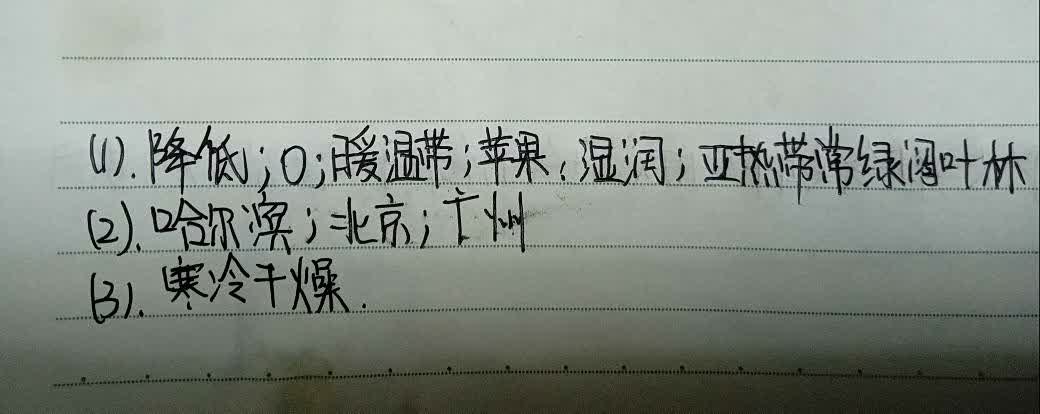 (1). 降低；0；暖温带；苹果；湿润；亚热带常绿阔叶林
(2). 哈尔滨；北京；广州
(3). 寒冷干燥.